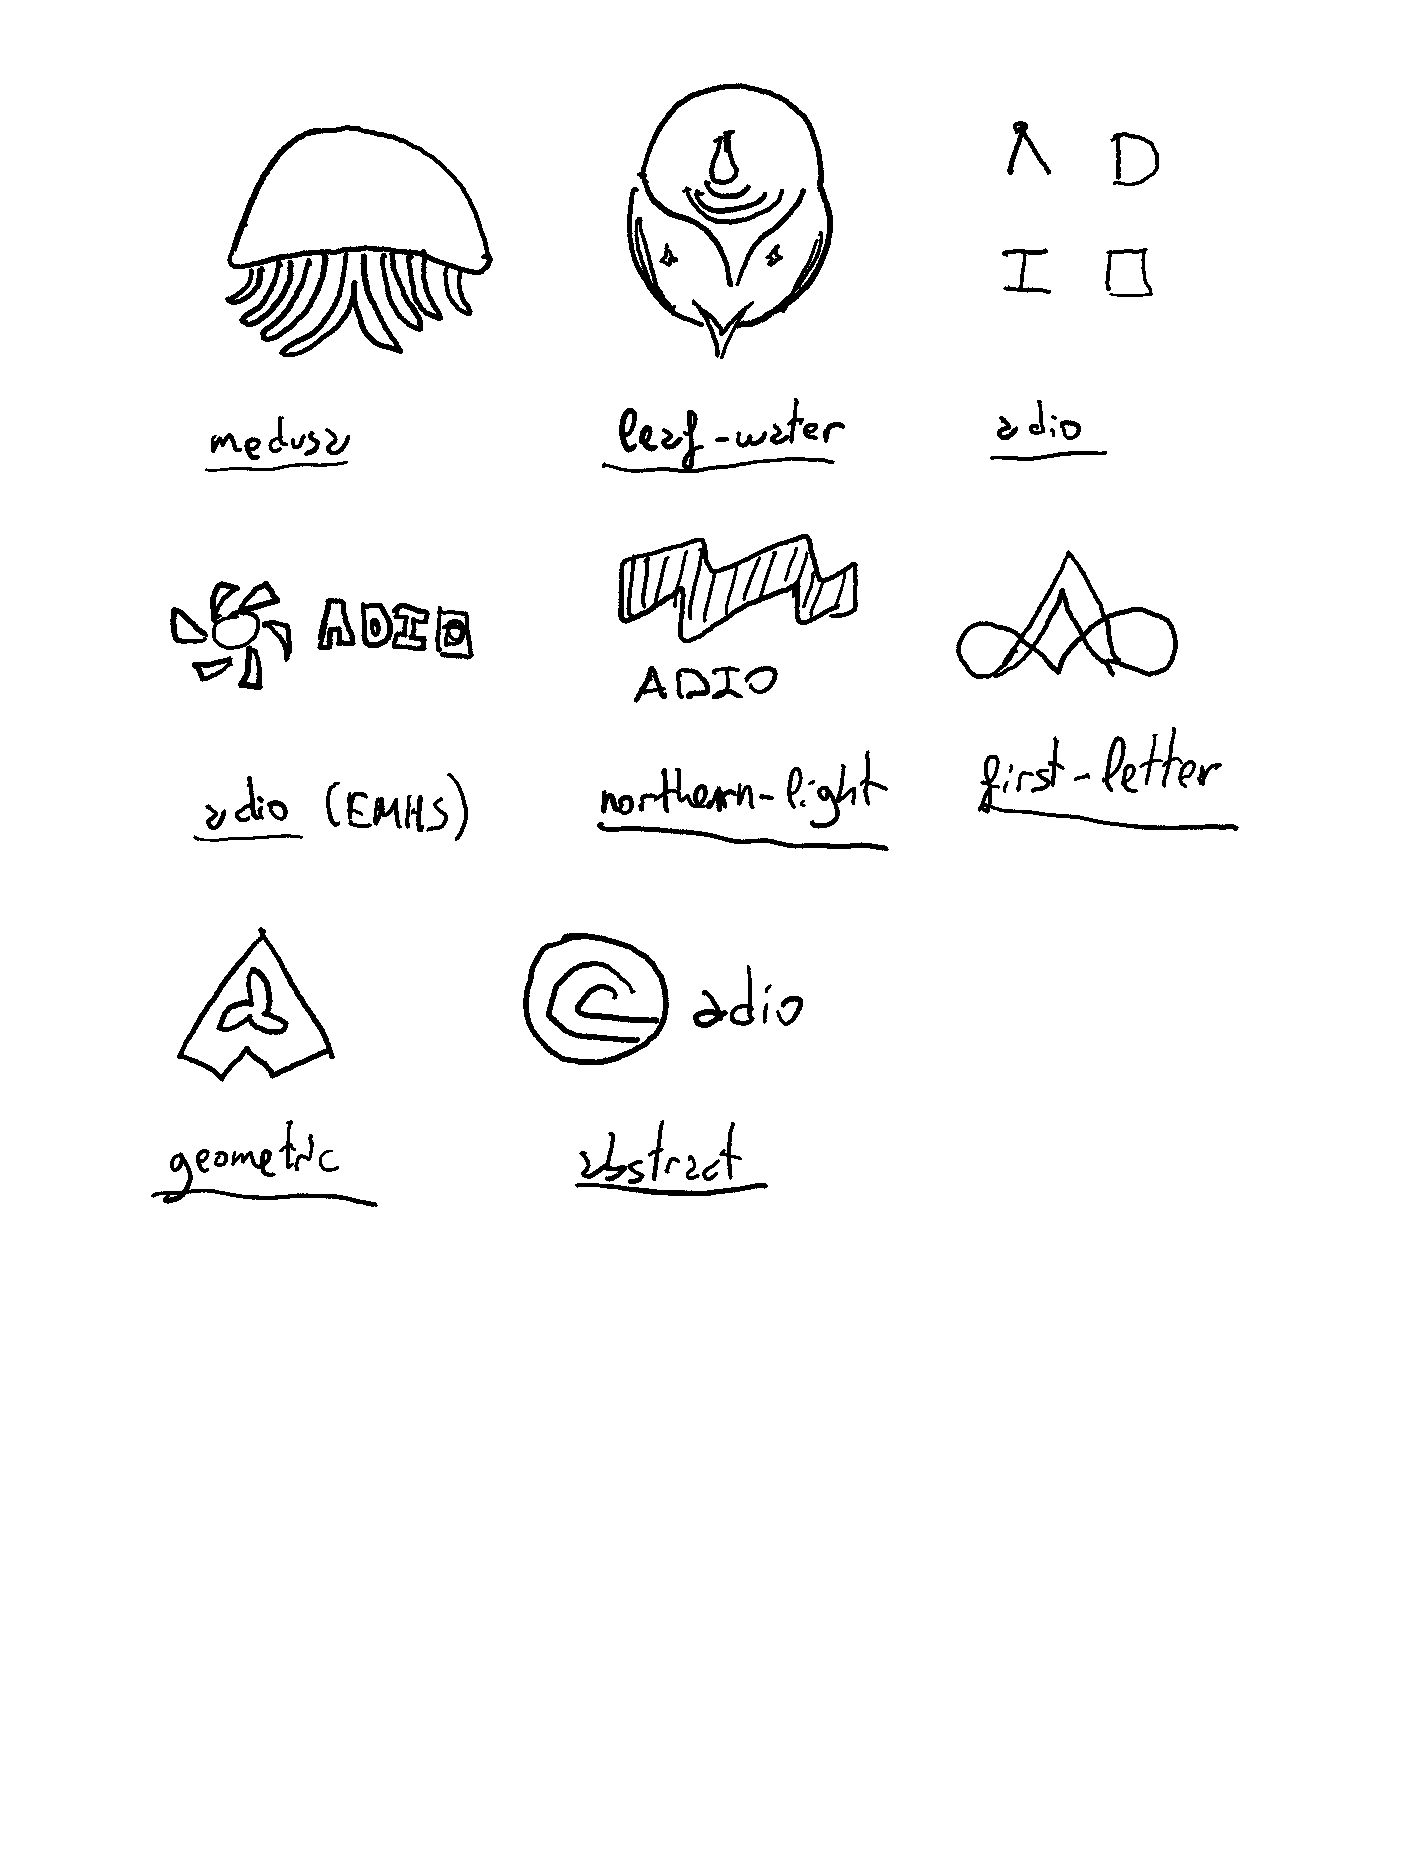 A D
I O
medusa
leaf-water
adio
ADIO
ADIO
adio (EMHS)
northern-light
first-letter
adio
geometric
abstract